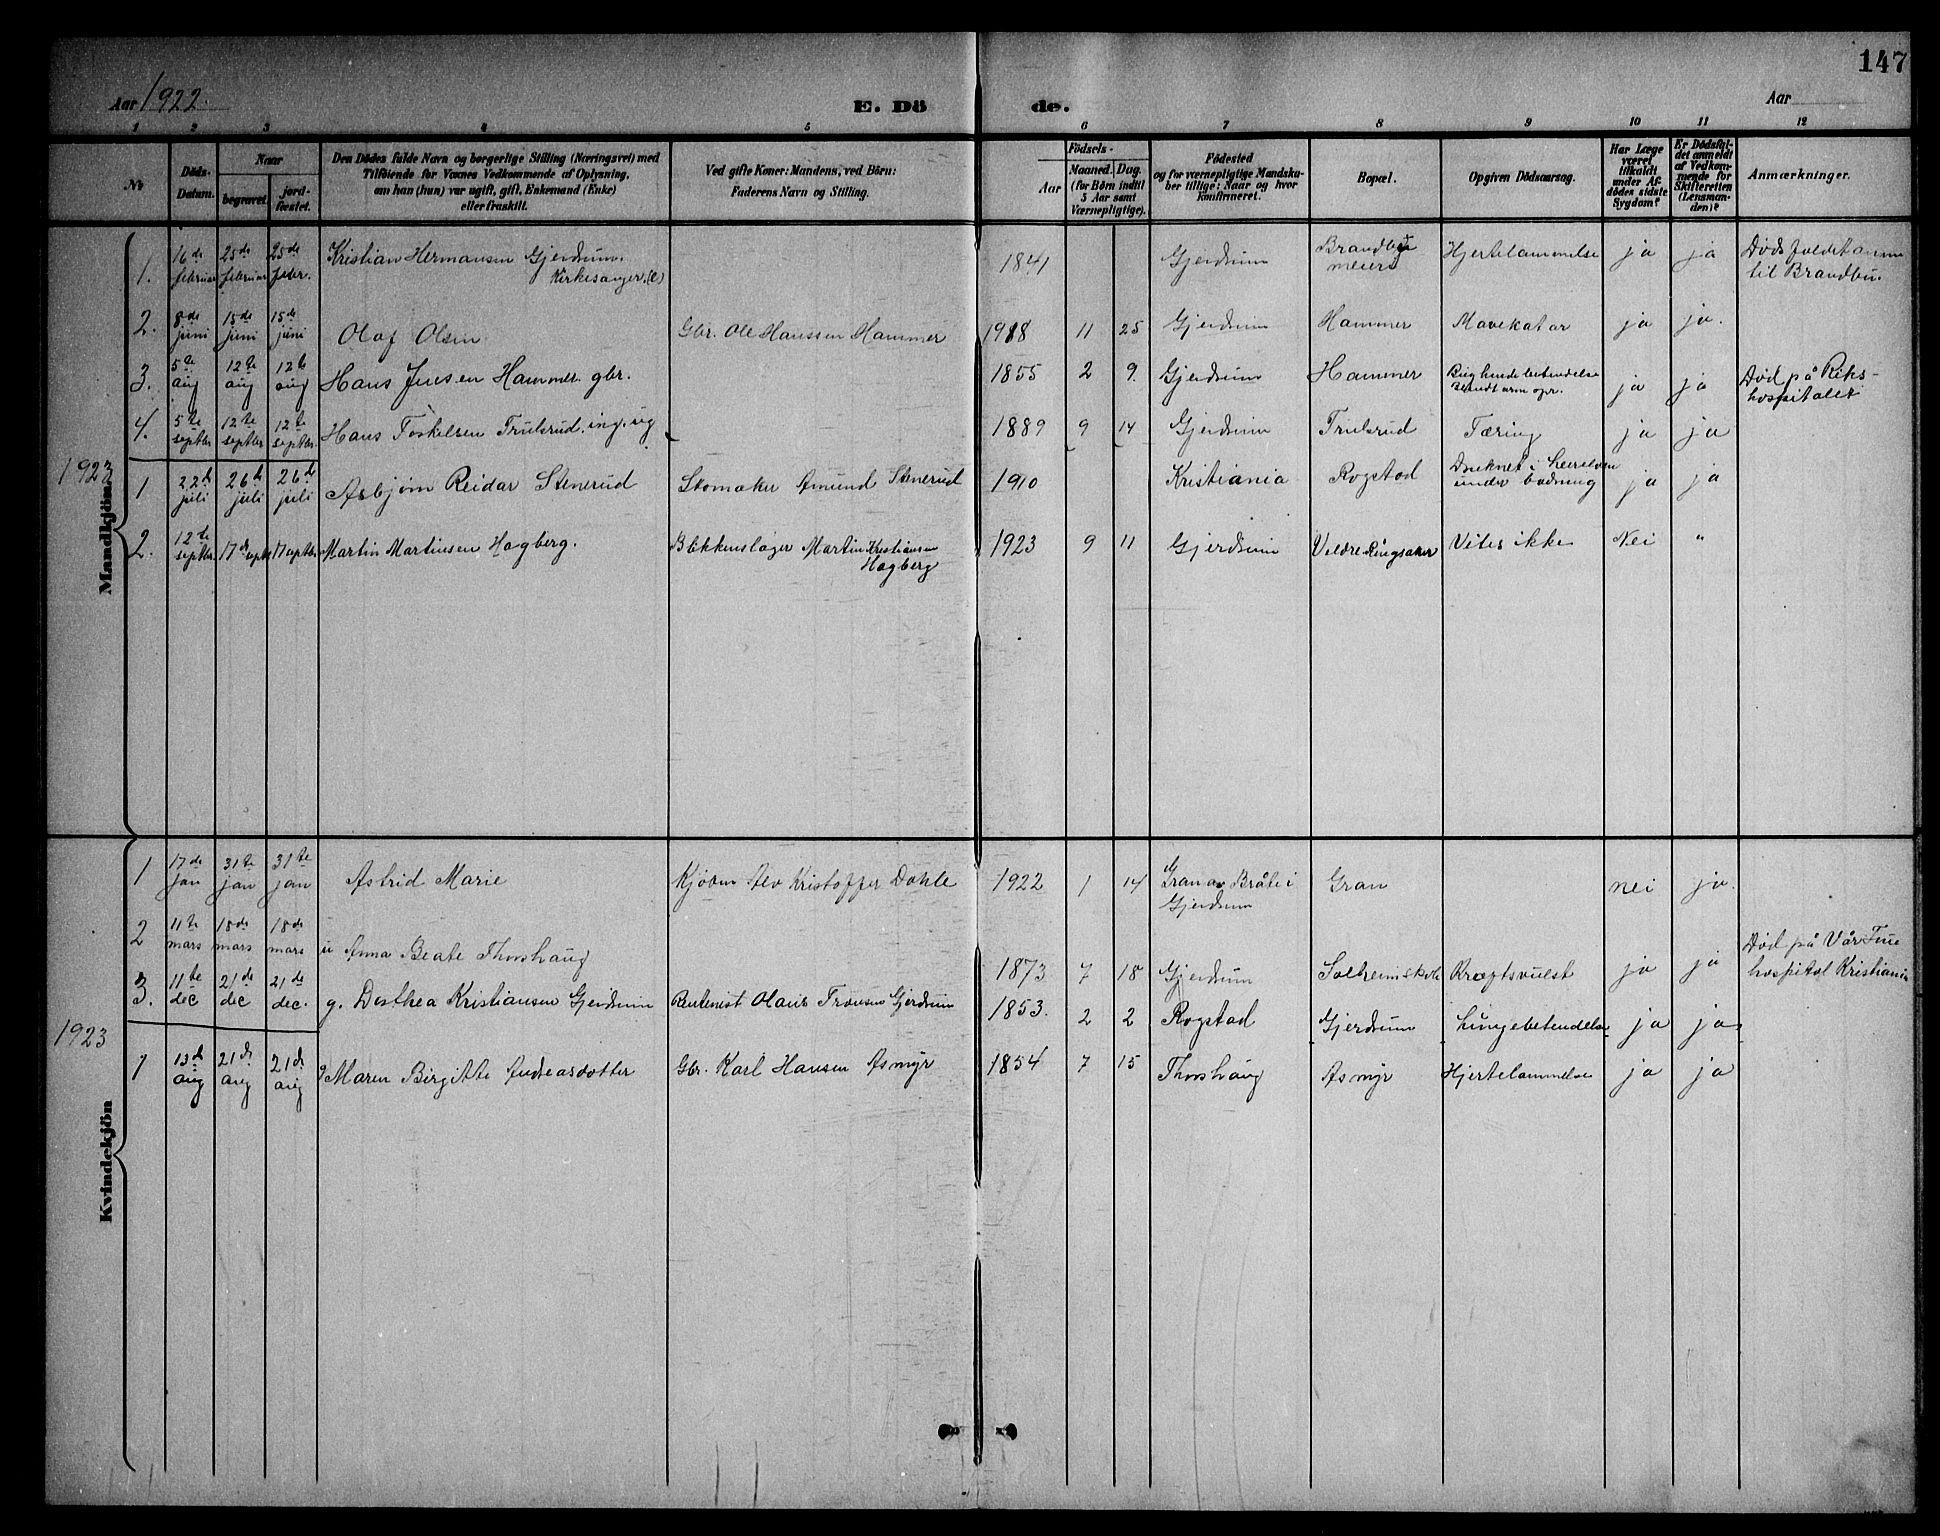 147
Aar 1922.
E. Dö de.
Aar
1 2 3 4 5 6 7 8 9 10 11 12
No
Döds-Datum.
Naar
begravet.
jord-fæstet.
Den Dödes fulde Navn og borgerlige Stilling (Næringsvei) med
Tilföiende for Voxnes Vedkommende af Oplysning,
om han (hun) var ugift, gift, Enkemand (Enke)
eller fraskilt.
Ved gifte Koner: Mandens, ved Börn:
Faderens Navn og Stilling.
Födsels-
Aar
Maaned. Dag.
(for Börn indtil
5 Aar samt
Værnepligtige).
Födested
og for værnepligtige Mandska-
ber tillige: Naar og hvor
konfirmeret.
Bopæl.
Opgiven Dödsaarsag.
Har Læge
været
tilkaldt
under Af-
dödes sidste
Sygdom?
Er Dödsfal-
det anmeldt
af Vedkom-
mende for
Skifteretten
(Lensman-
den)?
Anmærkninger.
Mandkjön
1. 16de februar 25de februar 25de febr. Kristian Hermansen Gjerdrum. Kirkesanger. (e) 1841 Gjerdrum Brandbu meieri Hjertelammelse ja ja Dødsfaldet anm til Brandbu.
2. 8de juni 15de juni 15de juni Olaf Olsen Gbr. Ole Hanssen Hammer 1918 11 25 Gjerdrum Hammer Mavekatar ja ja.
3. 5te aug 12te aug 12te aug Hans Jensen Hammer gbr. 1855 2 9. Gjerdrum Hammer Bughindebetendelse opr. ja ja Død på Riks-hospitalet
4. 5te septbr 12te septbr 12te septbr. Hans Toskelsen Trulsrud. ing. ug 1889 9 14 Gjerdrum Trulsrud Tæring ja ja
1923
1 22d juli 26d juli 26d juli Asbjørn Reidar Stenerud Skomaker Amund Stenerud 1910 Kristiania Rogstad Druknet i Leirelven under badning ja ja
2. 12te septbr. 17d septbr 17 septbr. Martin Martinsen Hagberg. Blikkenslager Martin Kristiansen Hagberg 1923 9 11 Gjerdrum Veldre Ringsaker Vites ikke Nei "
Kvindekjön
1 17de jan 31te jan 31te jan Astrid Marie Kjørm Alv Kristoffer Dahle 1922 1 14 Gran av Bråte i Gjerdrum Gran nei ja.
2 11te mars 18de mars 18de mars u Anna Beate Thorshaug 1873 7 18 Gjerdrum Solheim skole Kræftsvulst ja ja Død på Vår Frue hospital Kristiania
3. 11te dec 21de dec 21de dec. g. Dorthea Kristiansen Gjerdrum Rentenist Olaus Fransen Gjerdrum 1853. 2 2 Rogstad Gjerdrum Lungebetendelse ja ja
1923
1 13d aug 21d aug 21d aug g Maren Birgitte Andreasdotter Gbr. Karl Hansen Asmyr 1854 7 15 Thorshaug Asmyr Hjertelammelse ja ja